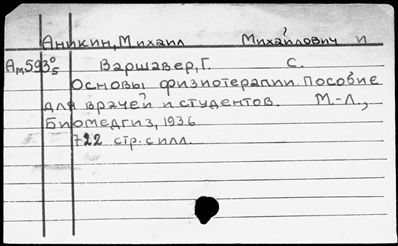 Аникин, Михаил Михайлович и
Ам593⁰/5 Варшавер, Г. С.
Основы физиотерапии. Пособие
для врачей и студентов. М.-Л.,
Биомедгиз, 1936.
722 стр. с илл.